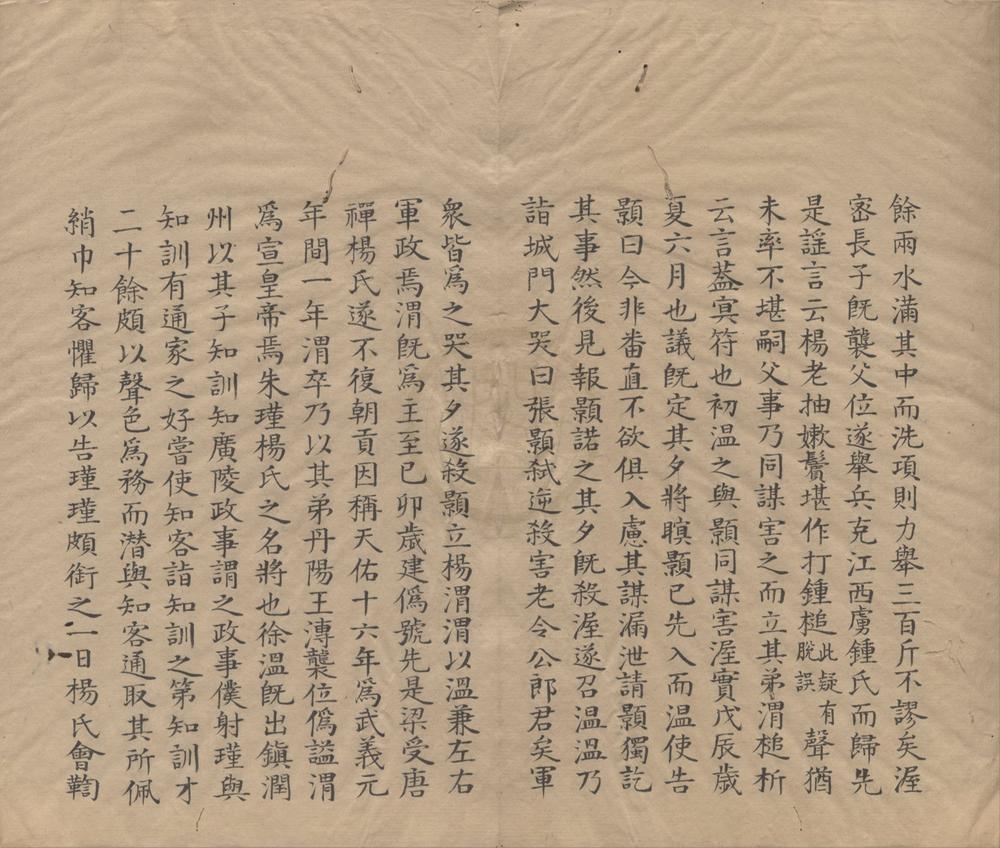 餘兩水滿其中而洗項則力舉三百斤不謬矣渥
宻長子既襲父位遂舉兵克江西虜鍾氏而歸先
是謡言云楊老抽嫩鬢堪作打鍾槌此疑有脫誤聲猶
未率不堪嗣父事乃同謀害之而立其弟渭槌析
云言葢㝠符也初温之與顥同謀害渥實戊辰歳
夏六月也議既定其夕將瞑顥已先入而温使告
顥曰今非畨直不欲俱入慮其謀漏泄請顥獨訖
其事然後見報顥諾之其夕既殺渥遂召温温乃
詣城門大哭曰張顥弑逆殺害老令公郎君矣軍
衆皆爲之哭其夕遂殺顥立楊渭渭以温兼左右
軍政焉渭既爲主至已卯歳建僞號先是梁受唐
禪楊氏遂不復朝貢因稱天佑十六年爲武義元
年間一年渭卒乃以其弟丹陽王漙襲位僞謚渭
爲宣皇帝焉朱瑾楊氏之名將也徐温既出鎮潤
州以其子知訓知廣陵政事謂之政事僕射瑾與
知訓有通家之好嘗使知客詣知訓之第知訓才
二十餘頗以聲色爲務而潜與知客通取其所佩
綃巾知客懼歸以告瑾瑾頗銜之一日楊氏會鞫